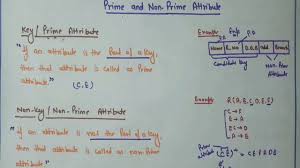 Prime and Non-Prime Attribute
Key / Prime Attribute
"If an attribute is the Part of a key,
then that attribute is called as Prime
attribute."
(C, E)
Non-key / Non-Prime Attribute
"If an attribute is not the Part of a key,
then that attribute is called as non-prime
attribute"
Example
Name
D.O.B
Add
Branch
Candidate Key
Non-Prime
Example
R(A, B, C, D, E, F)
C → F
E → A
EC → D
A → B
Prime
attribute